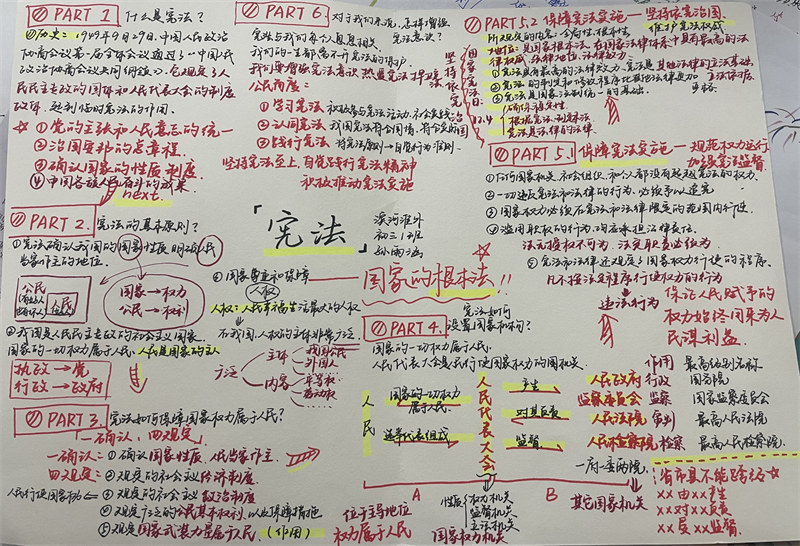 PART 1 什么是宪法？
历史：1949年9月29日，中国人民政治
协商会议第一届全体会议通过了《中国人民
政治协商会议共同纲领》，它规定了人
民民主专政的国体和人民代表大会的制度
政体，起到临时宪法的作用。
①党的主张和人民意志的统一
②治国安邦的总章程
③确认国家的性质 制度
④中国各族人民奋斗的成果
next.
PART 2. 宪法的基本原则？
①宪法确认我国的国家性质，明确人民
当家作主的地位。
公民
人民
国家→权力
公民→权利
②我国是人民民主专政的社会主义国家。
国家的一切权力属于人民，人民是国家的主人
执政→党
行政→政府
②国家尊重和保障
人权
人权：人民幸福生活最大的人权
在我国，人权的主体非常广泛
广泛
主体
我国公民
外国人
内容
平等权
劳动权
PART 3. 宪法如何保障国家权力属于人民？
「一确认，四规定」
一确认：①确认国家性质，人民当家作主。
四规定：②规定的社会主义经济制度
人民行使国家权力
③规定的社会主义政治制度
④规定广泛的公民基本权利，以及保障措施
⑤规定国家武装力量属于人民（作用）
「宪法」
初三1班
国家的根本法!!
PART 6. 对于我们来说，怎样增强
宪法意识？
宪法与我们每个人息息相关，
我们的一生都离不开宪法的保护
我们要增强宪法意识 热爱宪法 捍卫宪法
公民角度：
①学习宪法
②认同宪法
③践行宪法
坚持宪法至上，自觉践行宪法精神
积极推动宪法实施
坚持依宪治国
12.4
PART 5.2 保障宪法实施—坚持依宪治国
维护宪法权威
地位：是国家根本法，在国家法律体系中具有最高的法
律权威、法律地位、法律效力。
③宪法是国家法制统一的基础。
PART 5.1 保障宪法实施—规范权力运行
加强宪法监督
①任何国家机关和社会组织、和个人都没有超越宪法的权力。
②一切违反宪法和法律的行为，必须予以追究
③国家权力必须在宪法和法律限定的范围内行使。
④滥用职权的行为，均应承担法律责任。
法无授权不可为、法定职责必须为
⑤宪法和法律还规定了国家权力行使的程序。
凡不按法定程序行使权力的行为
违法行为
保证人民赋予的
权力始终用来为人
民谋利益。
PART 4. 宪法如何
设置国家机构？
国家的一切权力属于人民。
人民代表大会是人民行使国家权力的国家机关。
人民
国家的一切权力
属于人民。
选举代表组成
人民代表大会
产生
对其负责
监督
作用 最高级别名称
人民政府 行政 国务院
监察委员会 监察 国家监察委员会
人民法院 审判 最高人民法院
人民检察院 检察 最高人民检察院
一府一委两院
A
B
位于主导地位
权力属于人民
性质
权力机关
监督机关
立法机关
国家权力机关
其它国家机关
省市县不能跨级
××由××产生
××对××负责
××受××监督.